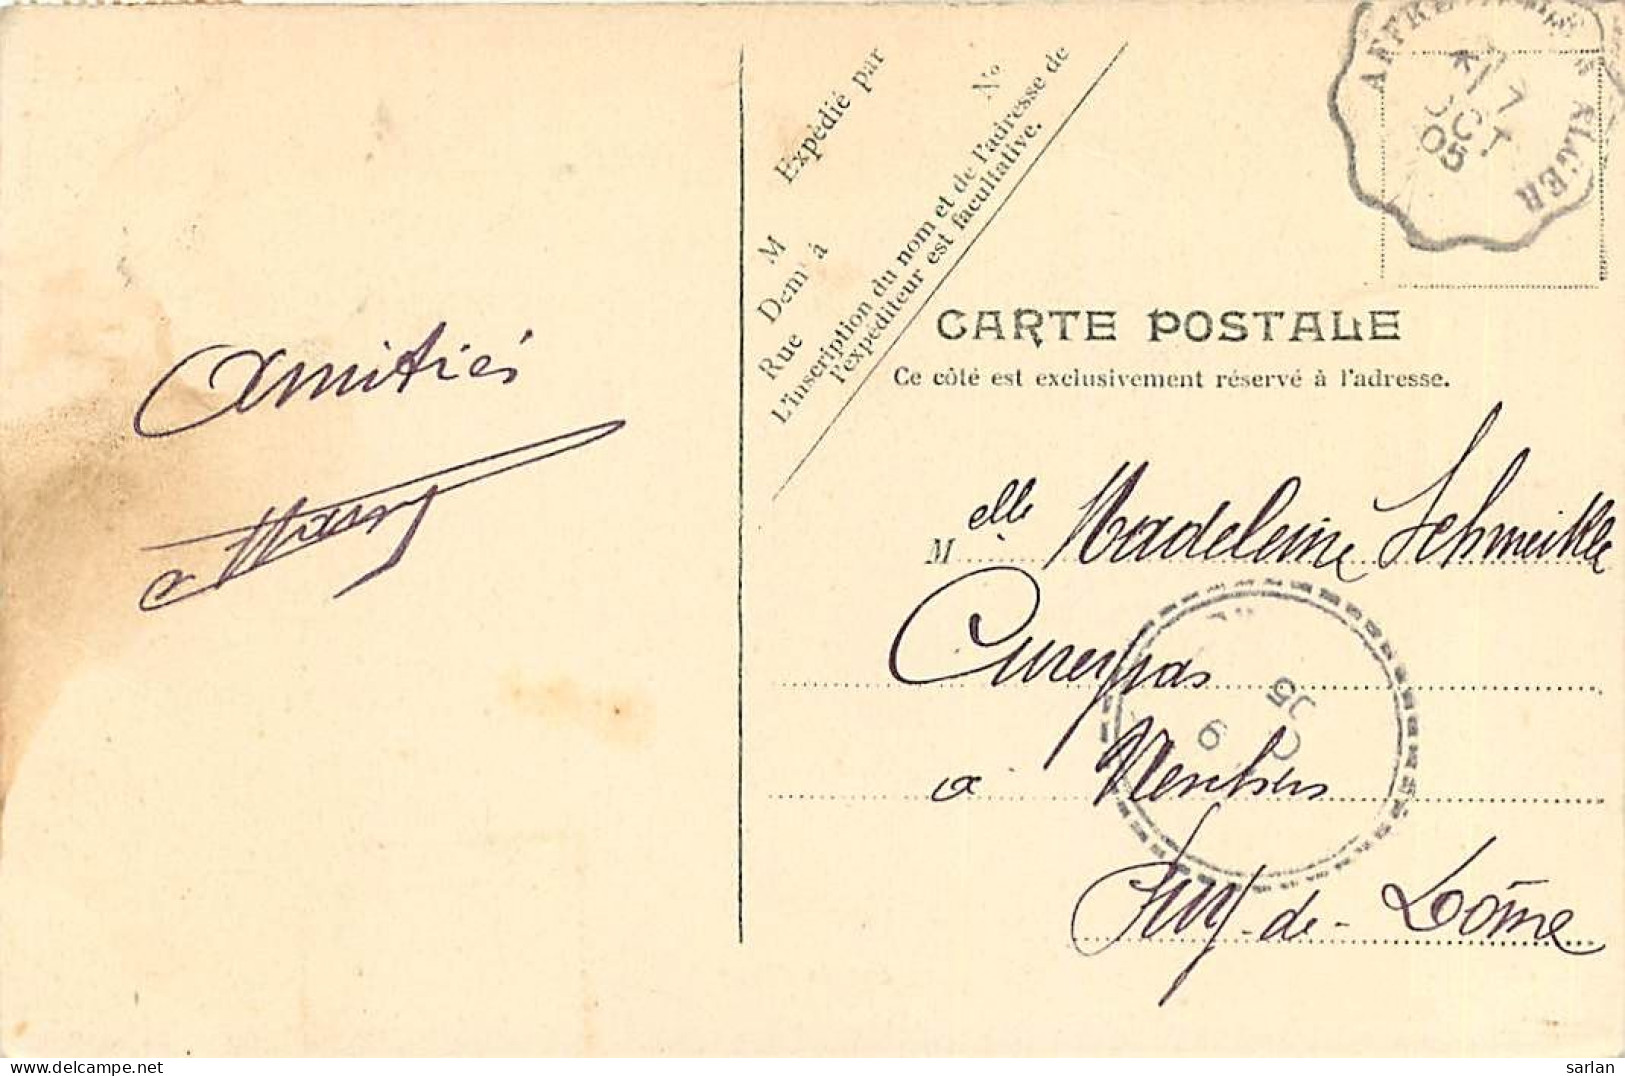 Expédié par
M
Nº
Demt à
Rue
L'inscription du nom et de l'adresse de
l'expéditeur est facultative.
AFFRE ALGER
17
OCT
05
CARTE POSTALE
Ce côté est exclusivement réservé à l'adresse.
Amitiés
Melle Madeleine Schmeikle
a
Puy-de-Dôme
9
05
www.delcampe.net
sarlan